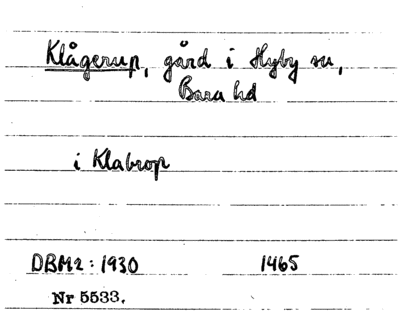 Klågerup, gård i Hyby sn,
Bara hd
i Klabrop
DBM2: 1930 1465
Nr 5533.